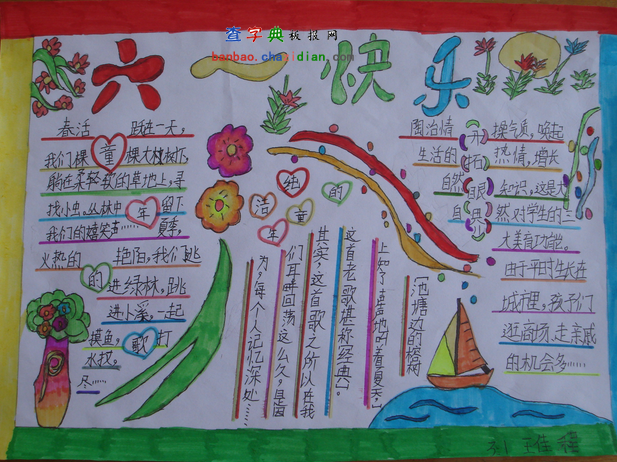 查字典板报网
banbao.chazidian.com
六一快乐
春活 跃在一天,
我们一棵 棵大树下,
躺在柔轻软的草地上,寻
找小虫。丛林中 留下
我们的嬉笑声…… 夏季,
火热的 艳阳,我们跳
进绿林,跳
进小溪,一起
摸鱼, 打
水仗,
尽……
童年的歌
纯洁的童年
[池塘边的榕树
上知了声声地听着夏天,]
这首老歌堪称[经典]。
其实,这首歌之所以在我
们耳畔回荡这么久,是因
为,每个人记忆深处……
陶冶情 操气质,唤起
生活的 热情,增长
自然 知识,这是大
自 然对学生的三
大美育功能。
由于平时生长在
城市里,孩子们
逛商场、走亲戚
的机会多……
开拓眼界